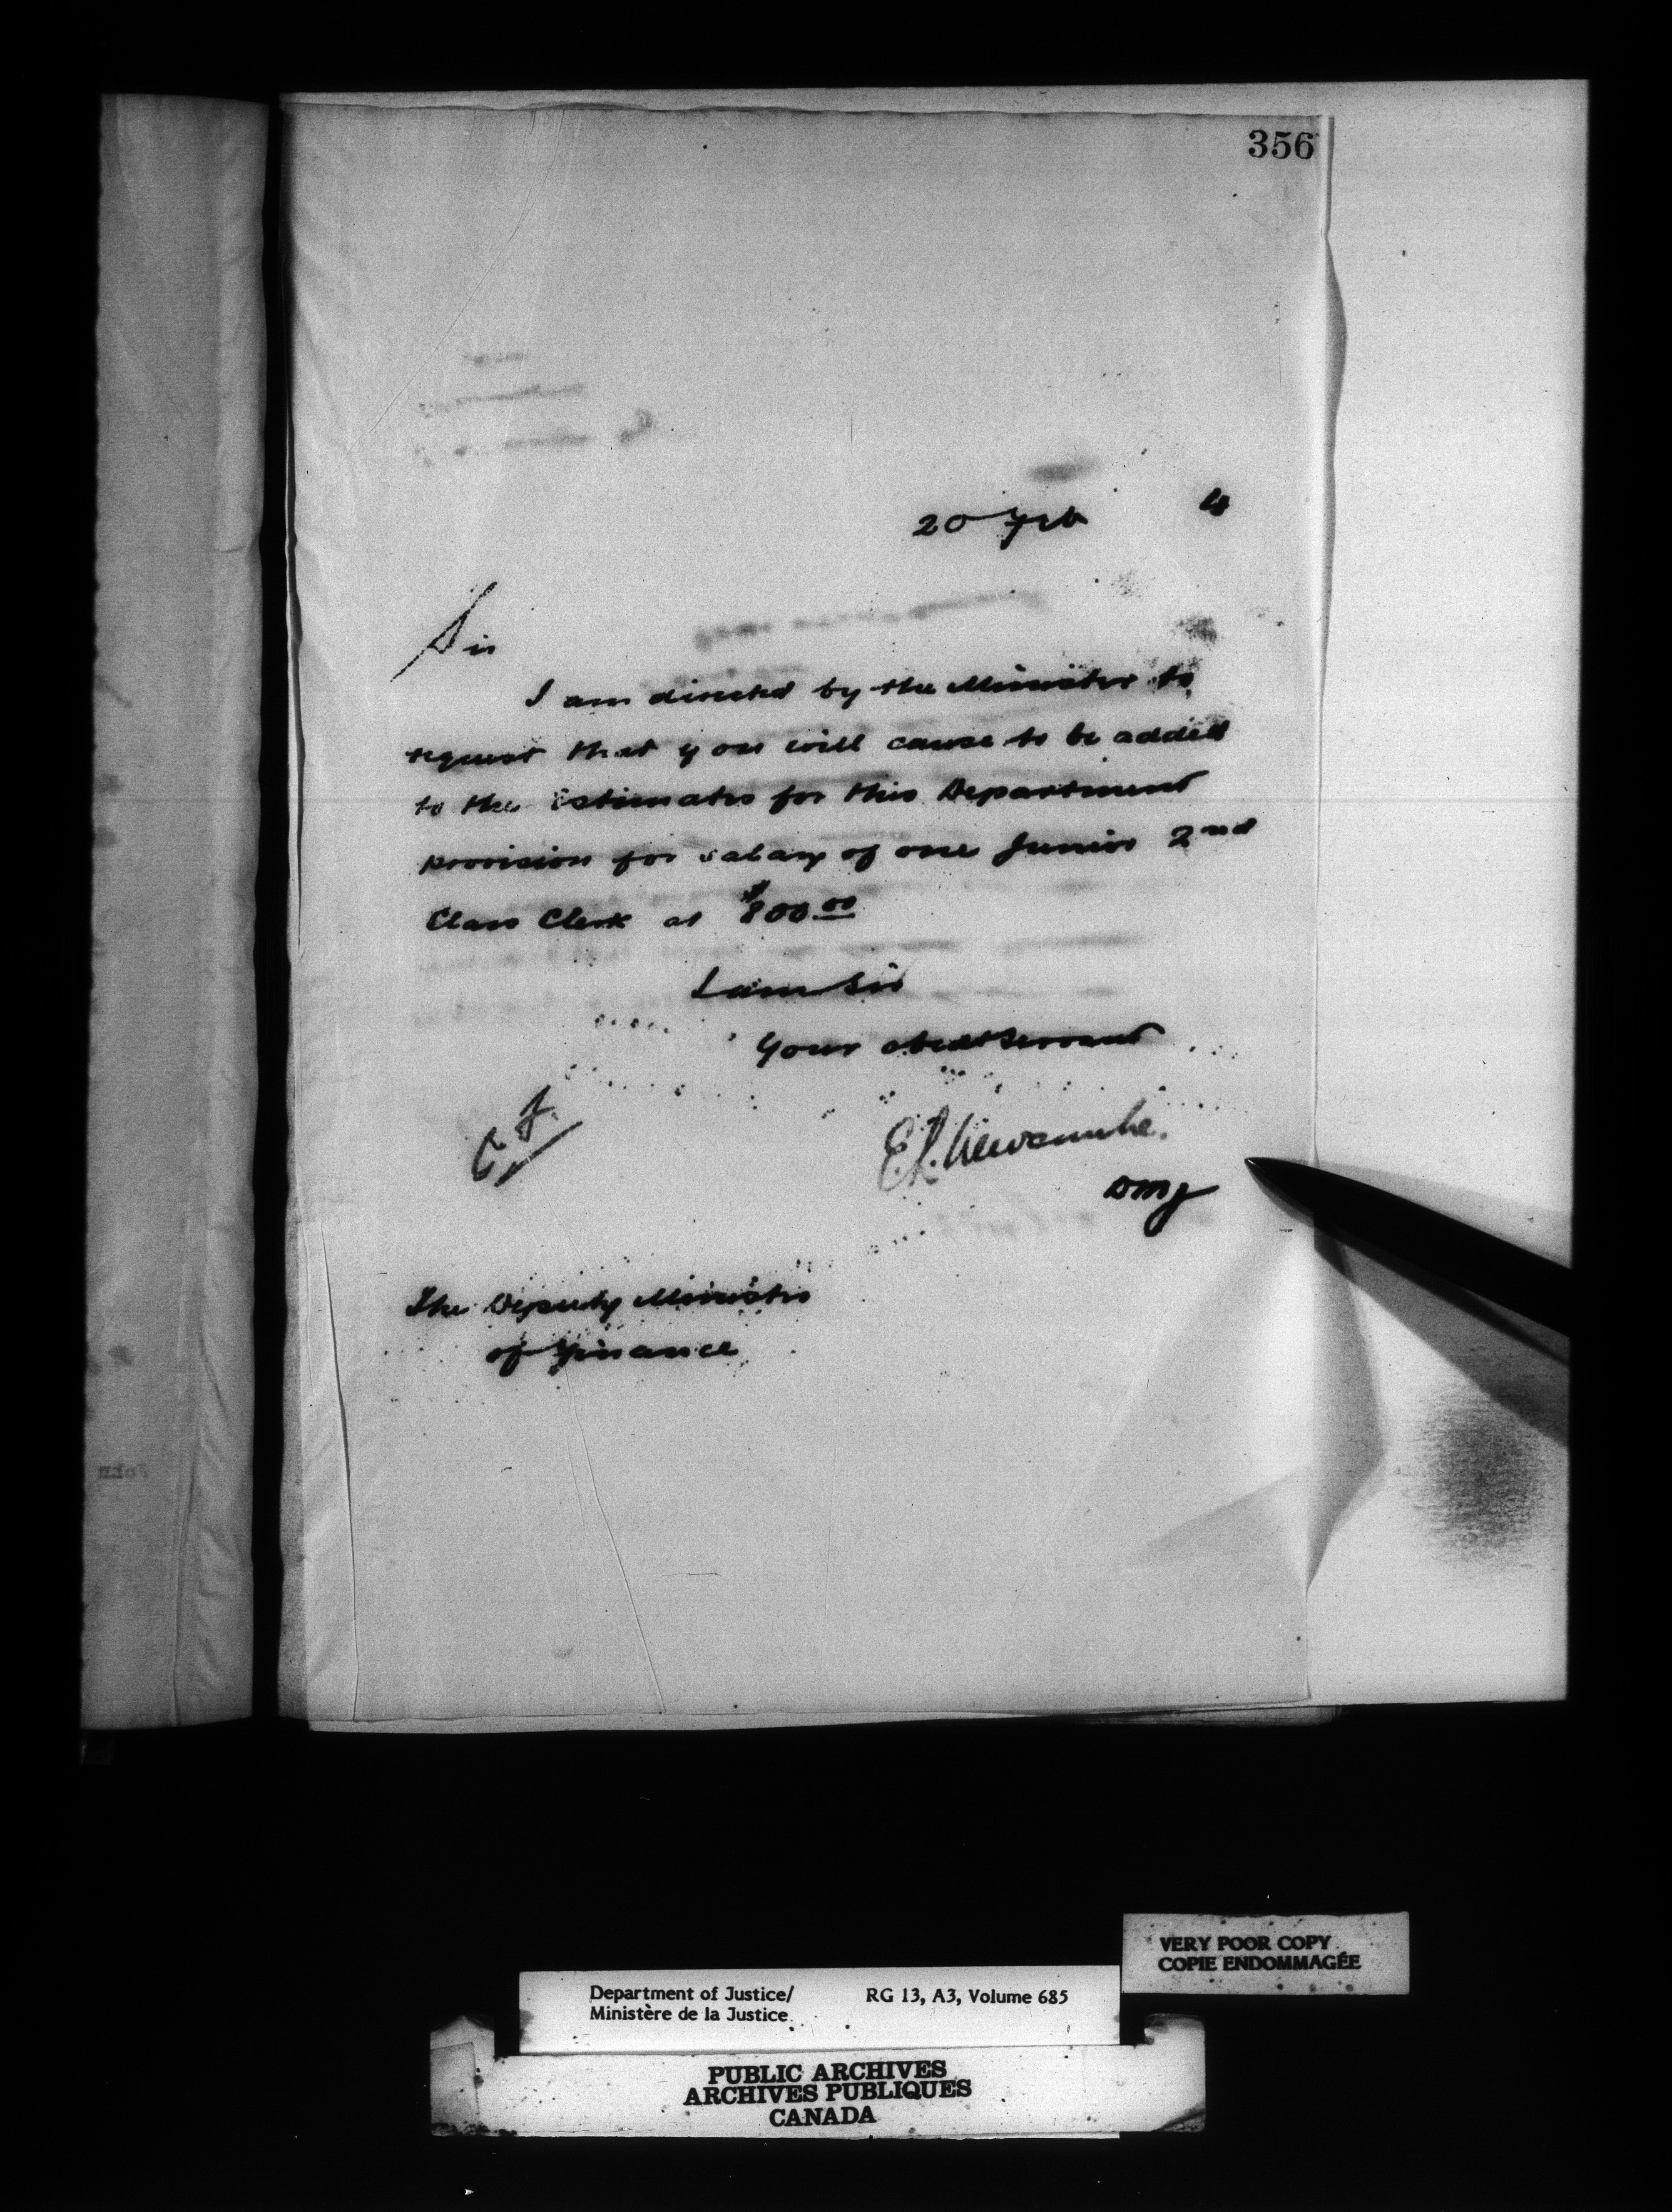 356
20 Feb 4
Sir
I am directed by the Minister to
request that you will cause to be added
to the Estimates for this Department
provision for salary of one Junior 2nd
Class Clerk at $800.00
I am Sir
Your obedt Servant
E.L. Newcombe.
DMJ
The Deputy Minister
of Finance
VERY POOR COPY
COPIE ENDOMMAGÉE
Department of Justice/ RG 13, A3, Volume 685
Ministère de la Justice
PUBLIC ARCHIVES
ARCHIVES PUBLIQUES
CANADA